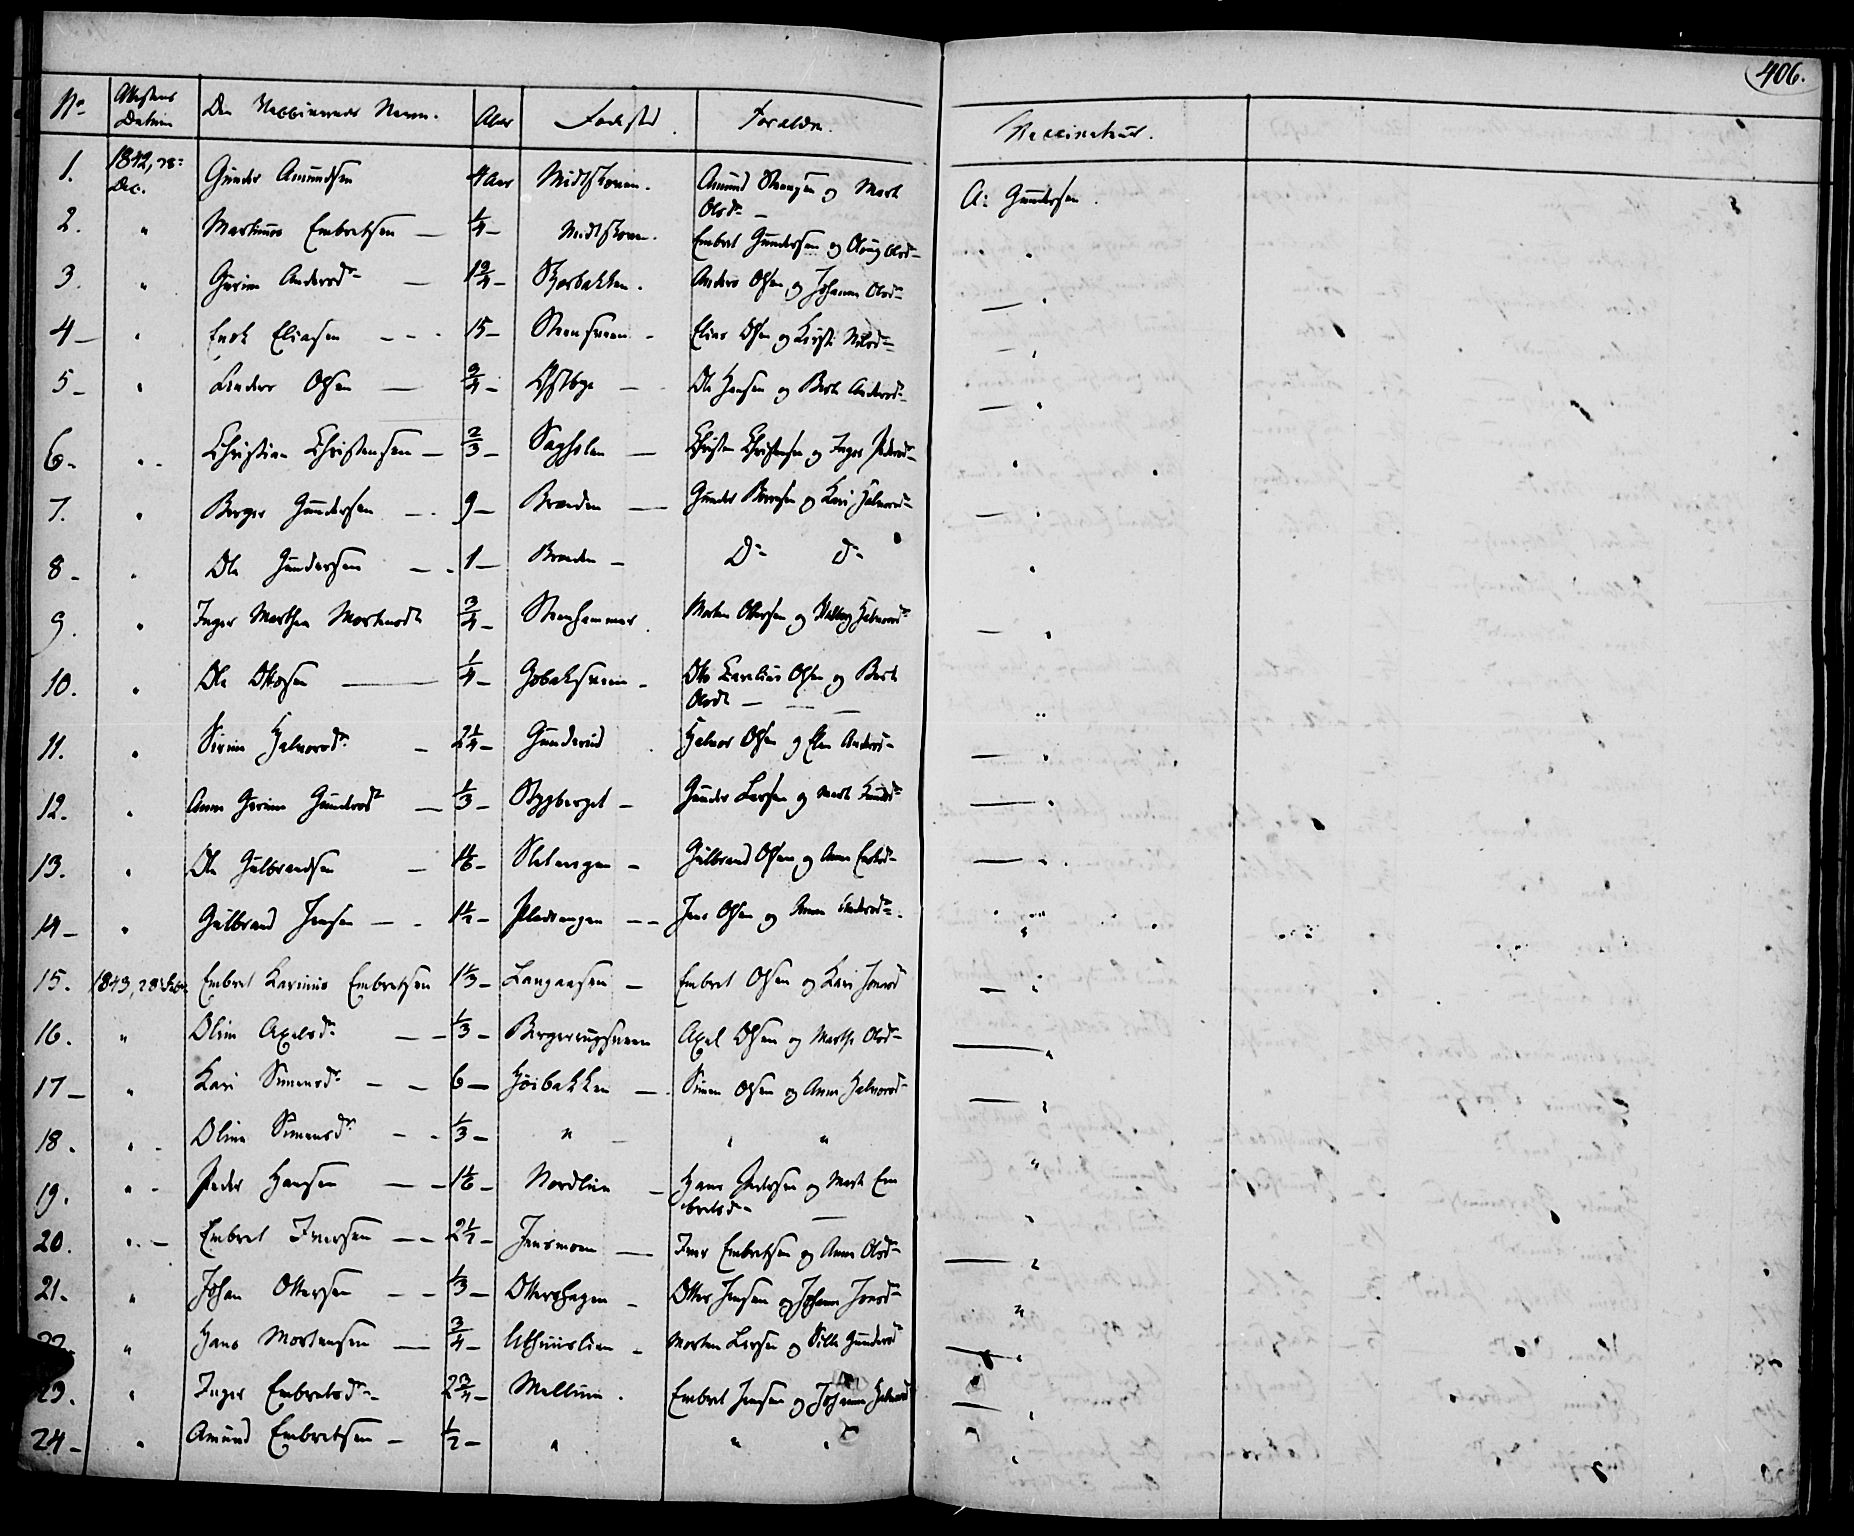 406.
No Attestens Datum Den Vaccineredes Navn. Alder Fødested. Forældre. Vaccinateur.
1. 1842, 28 Dec. Gunder Amundsen 4 Aar Midtskoven. Amund Steensen og Marte Olsdr — A: Gundersen.
2. " Martinus Embretsen — 1/4 — Midtskoven. Embret Gundersen og Olaug Olsdr "
3. " Gurine Andersdr — 1 3/4 — Skorbakken. Anders Olsen og Johanne Olsdr — "
4 — " Erik Eliasen — 15 — Steensveen — Elias Olsen og Kirsti Nilsdr — "
5 — " Anders Olsen — 3/4 — Østbye — Ole Hansen og Berte Andersdr — "
6 — " Christian Christensen — 2/3 — Sagholen — Christen Christensen og Inger Pedersdr "
7. " Berger Gundersen — 9 — Brænden — Gunder Børresen og Kari Halvorsdr — "
8 — " Ole Gundersen — 1 — Brænden — Do Do "
9. " Inger Marthea Mortensdr 3/4 — Steenhammer. Morten Ottersen og Halvorsdr — "
10. " Ole Ottosen — 1/4 — Gobaksveen — Otto Carelius Olsen og Berte Olsdr — "
11. " Sirine Halvorsdr — 2 1/4 — Gunderud Halvor Olsen og Else Andersdr — "
12. " Anne Gurine Gundersdr — 1/3 — Stygberget — Gunder Larsen og Marte Knudsdr — "
13. " Ole Gulbrandsen — 1 1/6 — Sletengen — Gulbrand Olsen og Anne Eriksdr — "
14 — " Gulbrand Jensen — 1 1/2 — Pladsengen — Jens Olsen og Anne Andersdr "
15. 1843, 28 Febr. Embret Karinius Embretsen 1 1/3 — Langaasen — Embret Olsen og Kari Jonsdr — "
16. " Oline Axelsdr — 1/3 — Bergerengsveen Axel Olsen og Marthe Olsdr — "
17 — " Kari Simensdr — 6 — Høibakken — Simen Olsen og Anne Halvorsdr — "
18. " Oline Simensdr — 1/3 — " " "
19. " Peder Hansen — 1 1/6 — Nordlien — Hans Pedersen og Marte Embretsdr — "
20. " Embret Iversen — 2 1/2 — Jensmoen — Iver Embretsen og Anne Olsdr — "
21. " Johan Ottersen — 1/3 — Ottershagen — Otter Jensen og Johanne Jonsdr "
22. " Hans Mortensen — 3/4 — Uthuuslien — Morten Larsen og Sille Gundersdr — "
23. " Inger Embretsdr 2 3/4 — Mellem. Embret Jensen og Johanne Halvorsdr — "
24 — " Amund Embretsen — 1/2 — " " " "